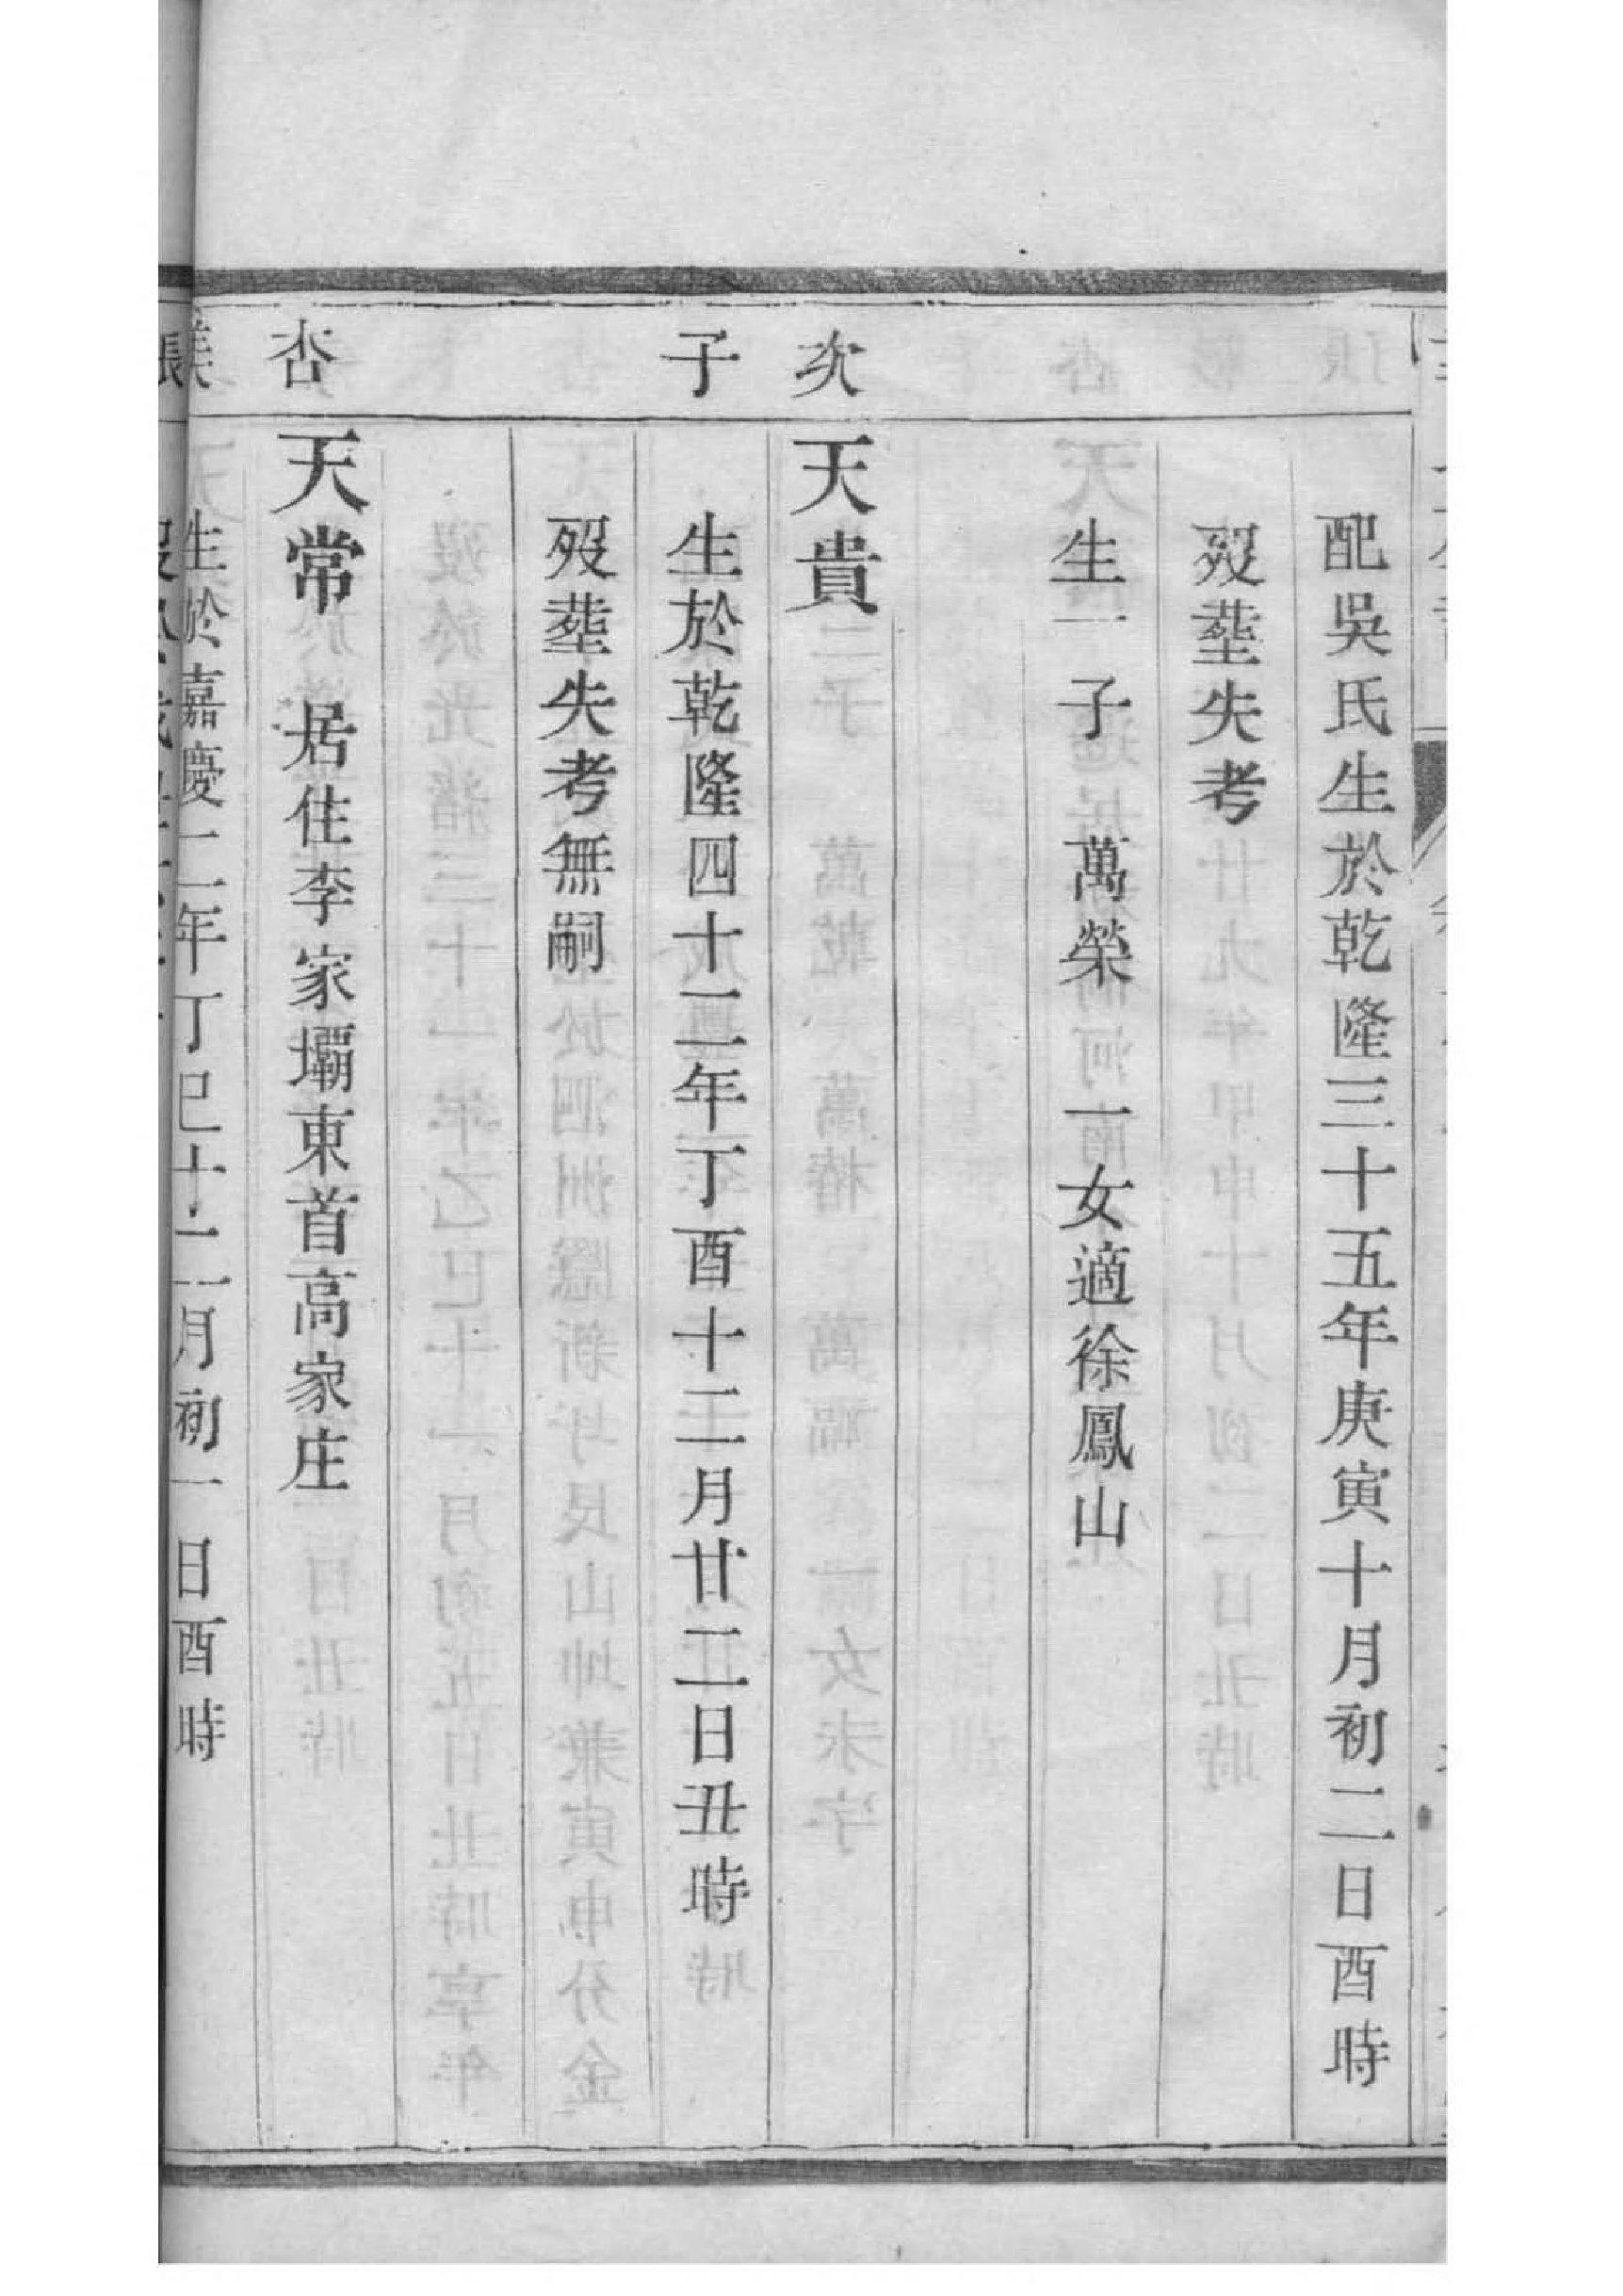 配吳氏生於乾隆三十五年庚寅十月初二日酉時
歿塟失考
生一子 萬榮 一女適徐鳳山
次 天貴
子 生於乾隆四十二年丁酉十二月廿二日丑時
歿塟失考無嗣
杏 天常 居住李家壩東首高家庄
生於嘉慶二年丁巳十二月初一日酉時